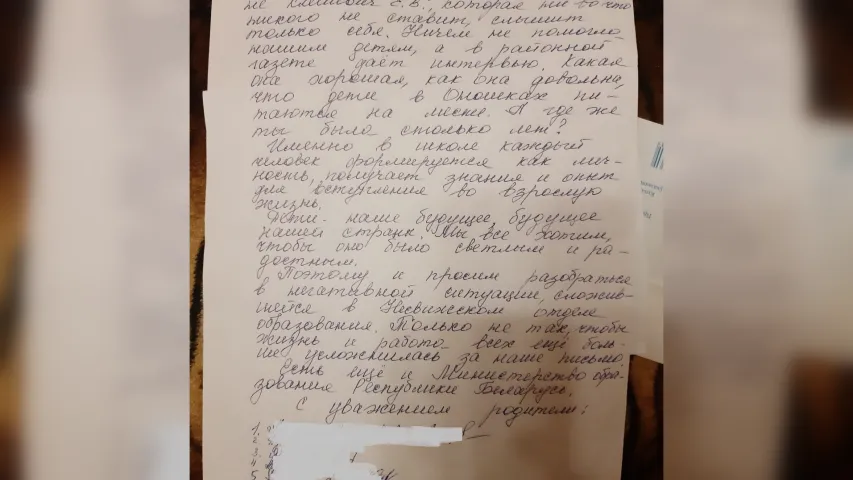 не Клешович С.В., которая ни во что
никого не ставит, слышит
только себя. Ничем не помогла
нашим детям, а в районной
газете даёт интервью. Какая
она хорошая, как она довольна,
что дети в Оношках пи-
таются на месте. А где же
ты была столько лет?
Именно в школе каждый
человек формируется как лич-
ность, получает знания и опыт
для вступления во взрослую
жизнь.
Дети - наше будущее, будущее
нашей страны. Мы все хотим,
чтобы оно было светлым и ра-
достным.
Поэтому и просим разобраться
в негативной ситуации, сложив-
шейся в Несвижском отделе
образования. Только не так, чтобы
жизнь и работа всех ещё боль-
ше усложнилась за наше письмо.
Есть ещё и Министерство обра-
зования Республики Беларусь.
С уважением родители:
1.
2.
3.
4.
5.